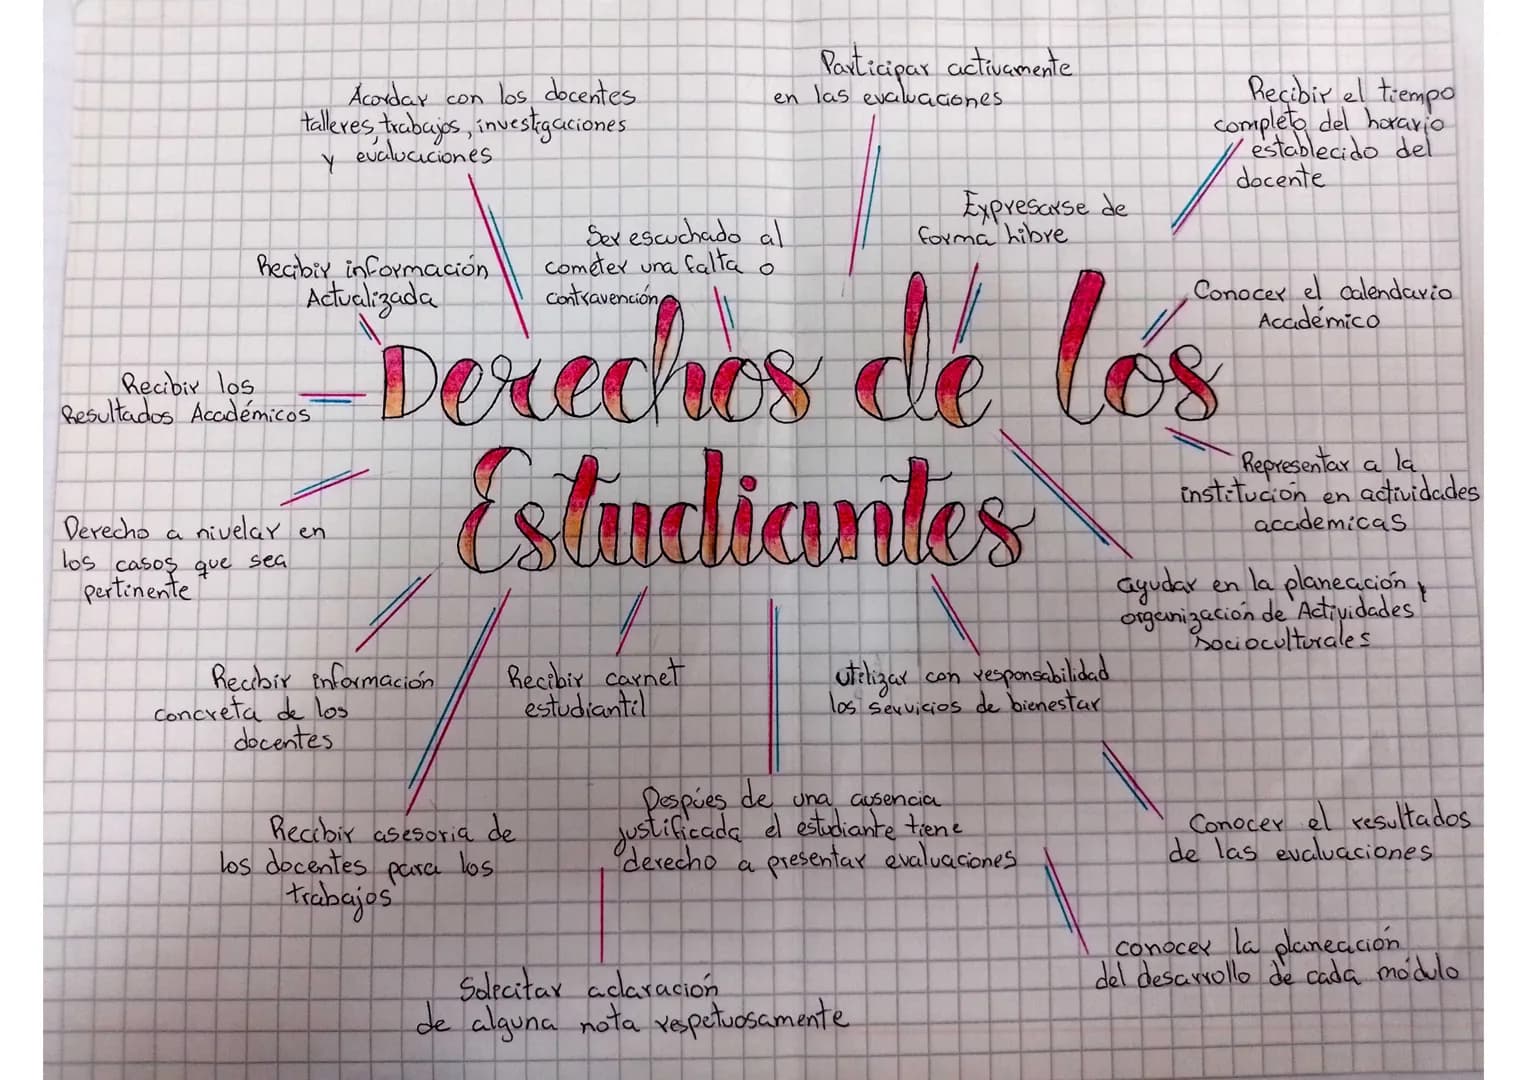 Acordar con los docentes
talleres, trabajos, investigaciones
y evaluaciones
Participar activamente
en las evaluaciones
Recibir el tiempo
completo del horario
establecido del
docente
Expresarse de
forma hibre
Ser escuchado al
cometer una falta o
contravención
Recibir información
Actualizada
Conocer el Calendario
Académico
Recibir los
Resultados Académicos
Derechos de los
Estudiantes
Representar a la
institución en actividades
academicas
Derecho a nivelar en
los casos que sea
pertinente
ayudar en la planeación y
organización de Actividades
Socioculturales
Recibir información
concreta de los
docentes
Recibir carnet
estudiantil
utilizar con responsabilidad
los servicios de bienestar
Recibir asesoria de
los docentes para los
trabajos
Despúes de una ausencia
justificada el estudiante tiene
derecho a presentar evaluaciones
Conocer el resultados
de las evaluaciones
conocer la planeación
del desarrollo de cada módulo
Solicitar aclaración
de alguna nota respetuosamente